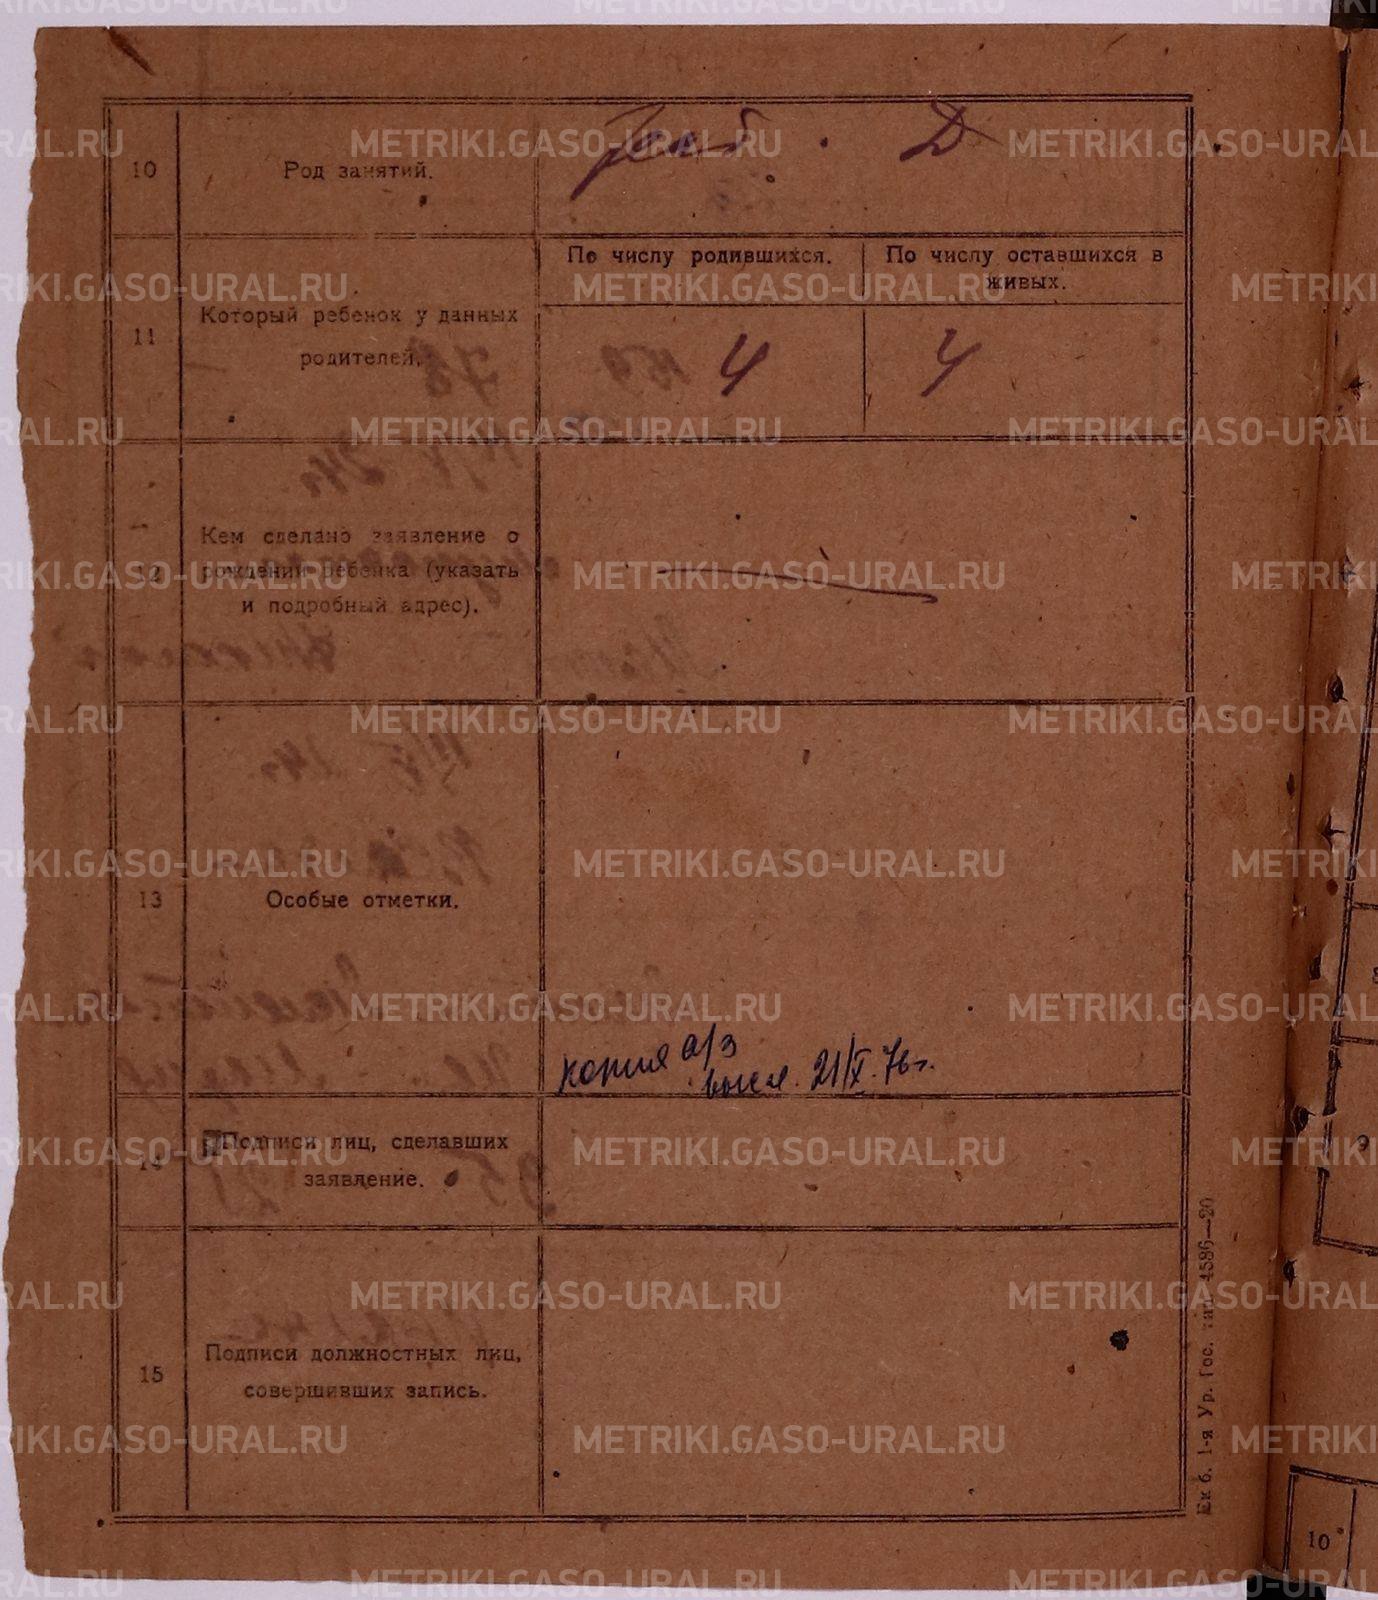 10
Род занятий.
Д
11
Который ребенок у данных
родителей.
По числу родившихся.
По числу оставшихся в
живых.
4
4
12
Кем сделано заявление о
рождении ребенка (указать
и подробный адрес).
13
Особые отметки.
копия а/з
высл. 21/X. 76 г.
14
Подписи лиц, сделавших
заявление.
15
Подписи должностных лиц,
совершивших запись.
Екб. 1-я Ур. Гос. тип. 4586—20
9
10
METRIKI.GASO-URAL.RU